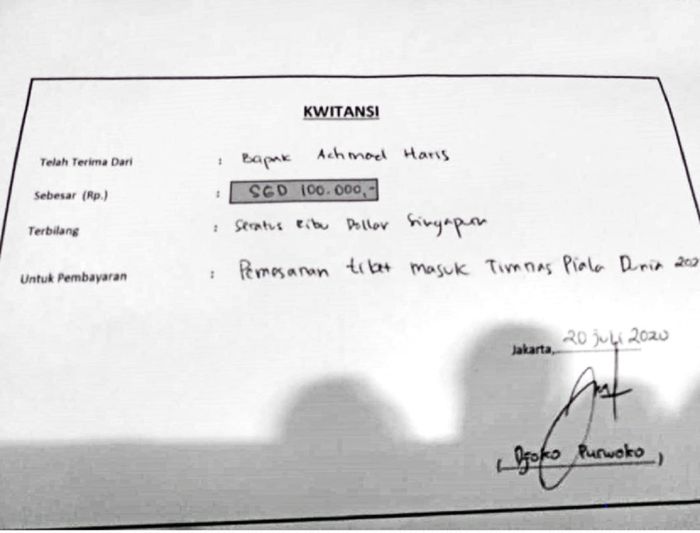 KWITANSI
Telah Terima Dari : Bapak Achmad Haris
Sebesar (Rp.) : SGD 100.000,-
Terbilang : Seratus Ribu Dollar Singapura
Untuk Pembayaran : Pemesanan tiket masuk Timnas Piala Dunia 202
Jakarta, 20 Juli 2020
( Djoko Purwoko )